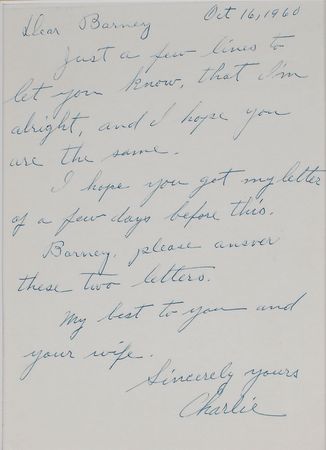 Dear Barney Oct 16, 1960
Just a few lines to
let you know, that I'm
alright, and I hope you
are the same.
I hope you got my letter
of a few days before this.
Barney, please answer
these two letters.
My best to you and
your wife.
Sincerely yours
Charlie